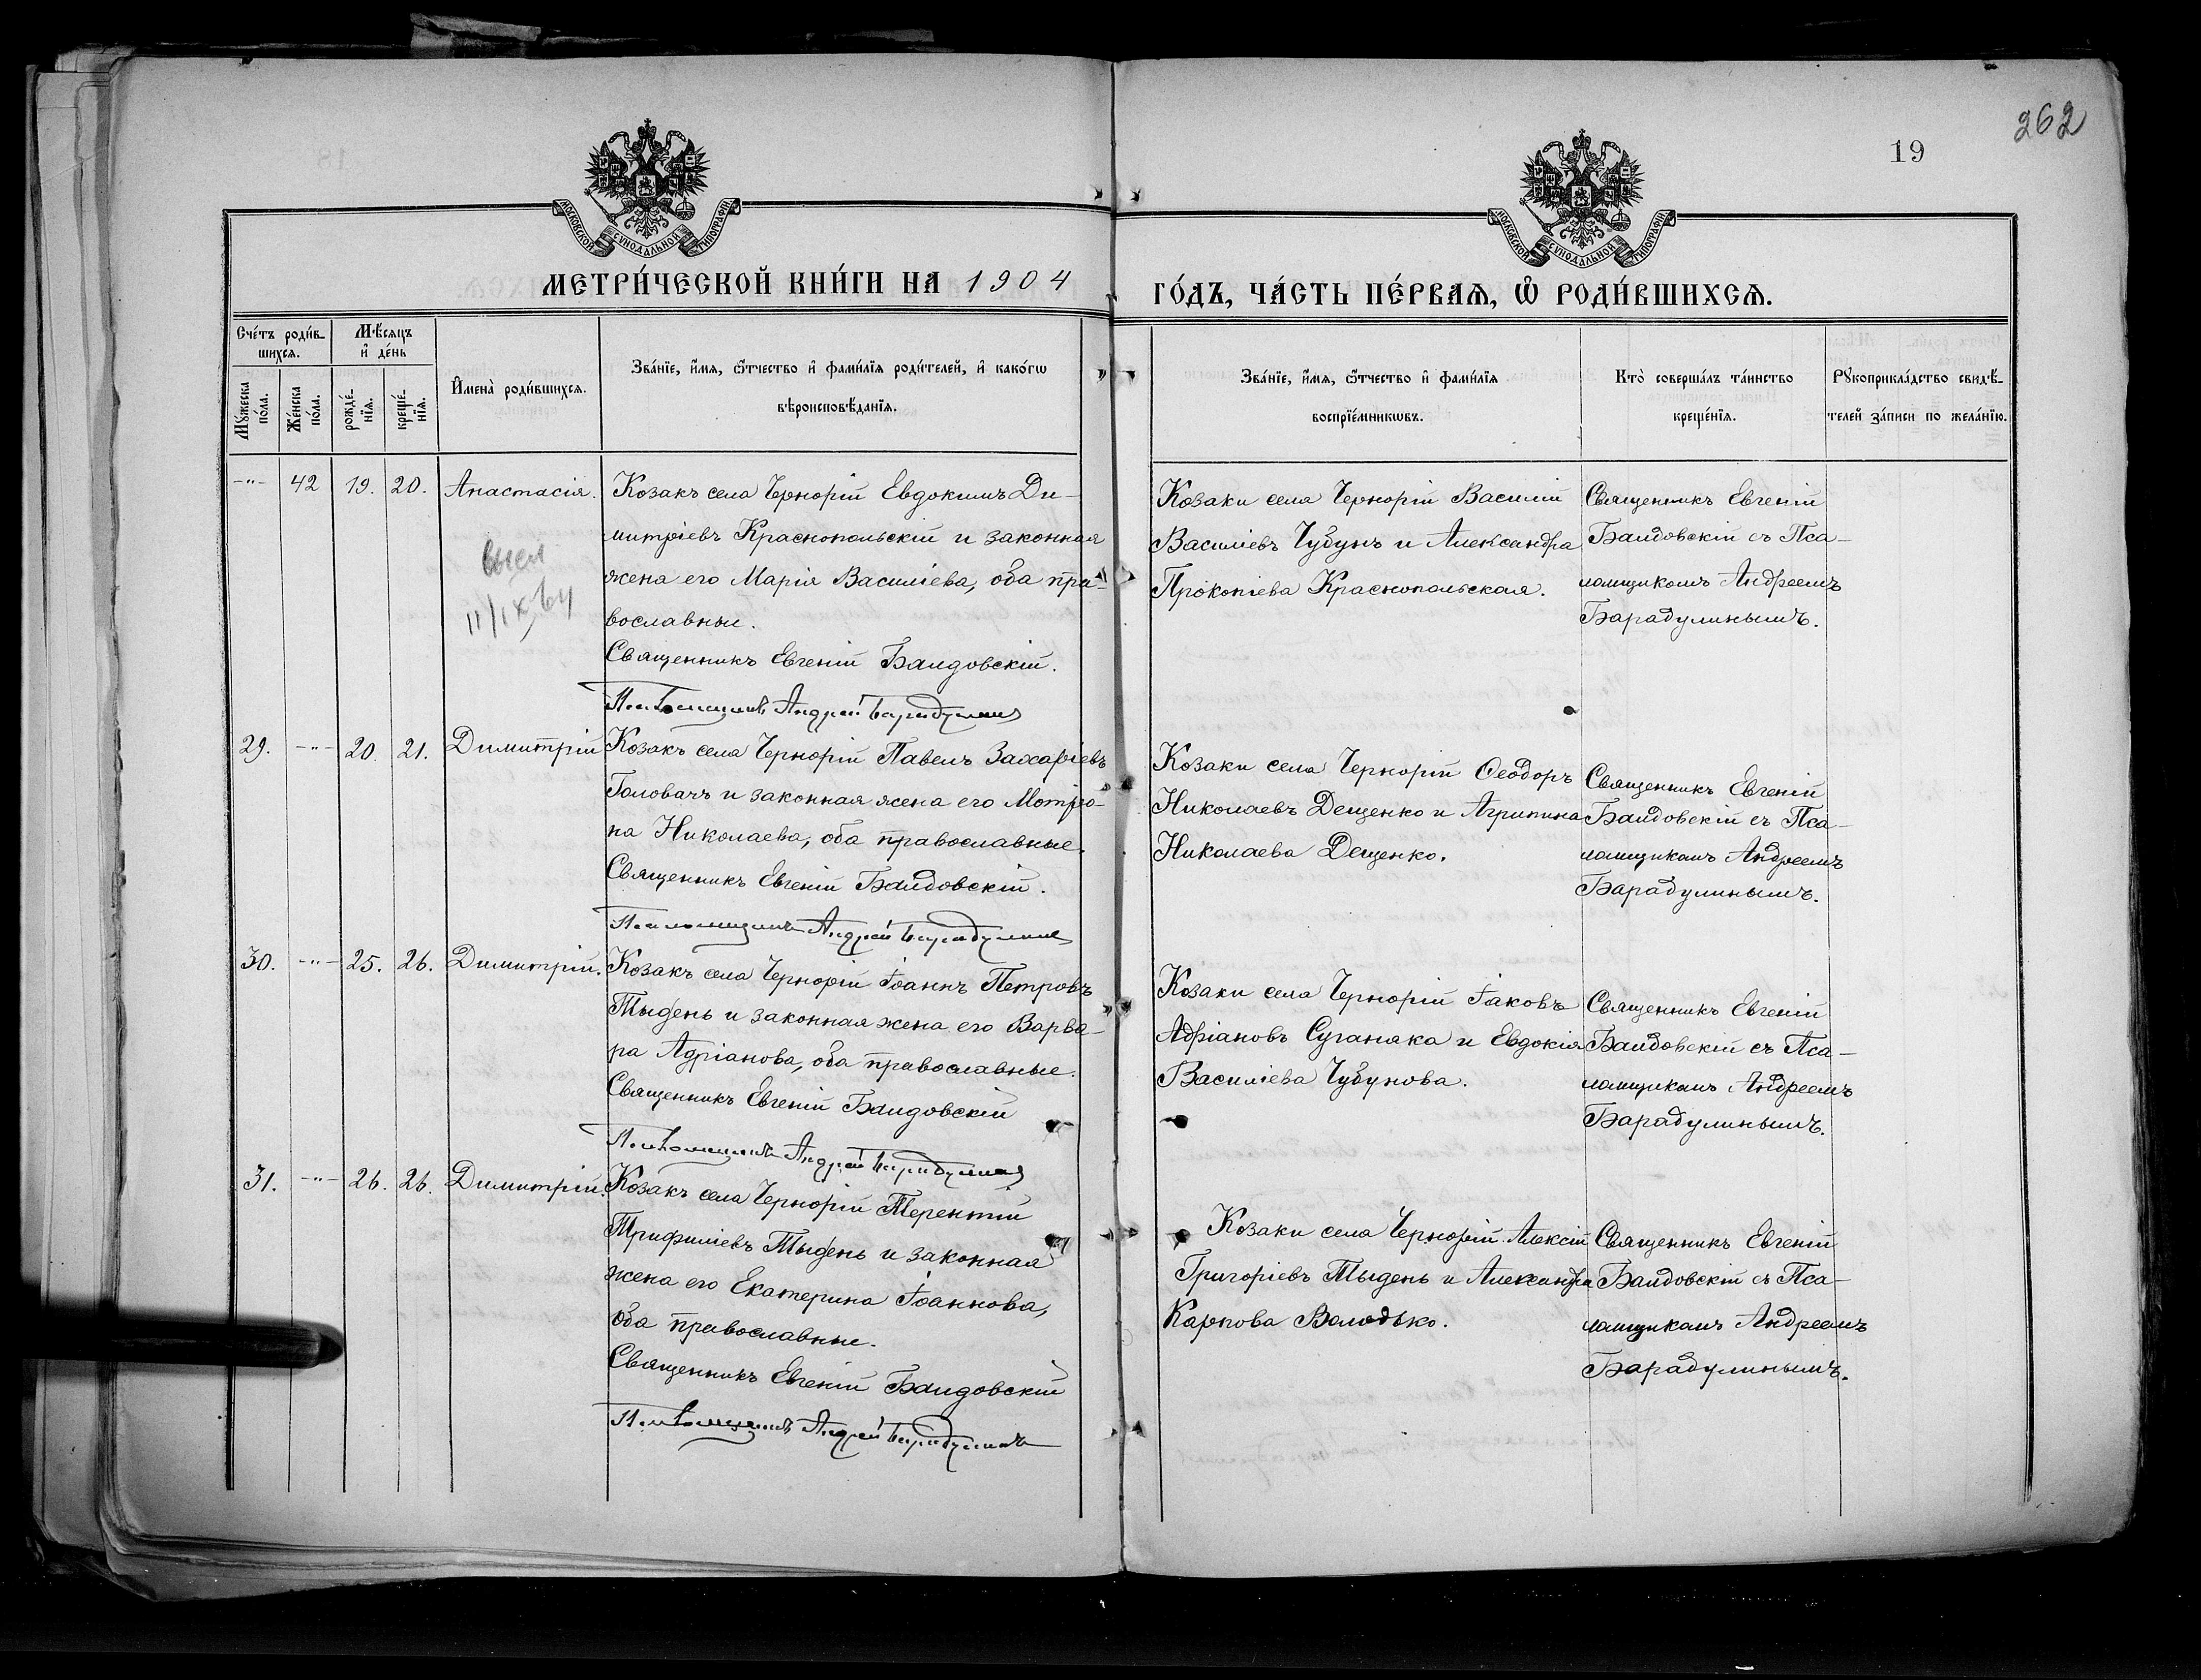 262
19
МОСКОВСКОЙ СУНОДАЛЬНОЙ ТИПОГРАФІИ
МОСКОВСКОЙ СУНОДАЛЬНОЙ ТИПОГРАФІИ
МЕТРИ́ЧЕСКОЙ КНИ́ГИ НА 1904
ГО́ДЪ, ЧА́СТЬ ПЕ́РВАѦ, Ѽ РОДИ́ВШИХСѦ.
Сче́тъ роди́в-
шихся.
Мѣ́сяцъ
и де́нь
Мꙋ́жеска
по́ла.
Же́нска
по́ла.
рожде́-
нїя.
креще́-
нїя.
И҆мена̀ роди́вшихся.
Зва́нїе, и҆́мя, ѻ҆́тчество и҆ фами́лїя роди́телей, и҆ како́гѡ
вѣроисповѣ́данїя.
Зва́нїе, и҆́мя, ѻ҆́тчество и҆ фами́лїя
воспрїе́мникѡвъ.
Кто̀ соверша́лъ та́инство
креще́нїя.
Рꙋкоприкла́дство свидѣ́-
телей за́писи по жела́нїю.
-"- 42 19. 20. Анастасія.
Козакъ села Чернорій Евдокимъ Ди-
митріевъ Краснопольскій и законная
жена его Марія Василіева, оба пра-
вославные.
Священникъ Евгеній Баидовскій.
Псаломщикъ Андрей Барадулинъ
11/IX
Козаки села Чернорій Василій
Василіевъ Чубунъ и Александра
Прокопіева Краснопольская.
Священникъ Евгеній
Баидовскій съ Пса-
ломщикомъ Андреемъ
Барадулинымъ.
29. -"- 20. 21. Димитрій
Козакъ села Чернорій Павелъ Захаріевъ
Головачъ и законная жена его Мотро-
на Николаева, оба православные.
Священникъ Евгеній Баидовскій.
Псаломщикъ Андрей Барадулинъ
Козаки села Чернорій Ѳеодоръ
Николаевъ Дещенко и Агрипина
Николаева Дещенко.
Священникъ Евгеній
Баидовскій съ Пса-
ломщикомъ Андреемъ
Барадулинымъ.
30. -"- 25. 26. Димитрій.
Козакъ села Чернорій Іоаннъ Петровъ
Тыдень и законная жена его Варва-
ра Адріанова, оба православные.
Священникъ Евгеній Баидовскій
Псаломщикъ Андрей Барадулинъ
Козаки села Чернорій Іаковъ
Адріановъ Суганяка и Евдокія
Василіева Чубунова.
Священникъ Евгеній
Баидовскій съ Пса-
ломщикомъ Андреемъ
Барадулинымъ.
31. -"- 26. 26. Димитрій.
Козакъ села Чернорій Терентій
Трифиліевъ Тыдень и законная
жена его Екатерина Іоаннова,
оба православные.
Священникъ Евгеній Баидовскій
Псаломщикъ Андрей Барадулинъ
Козаки села Чернорій Алексій
Григоріевъ Тыдень и Александра
Карпова Володько.
Священникъ Евгеній
Баидовскій съ Пса-
ломщикомъ Андреемъ
Барадулинымъ.